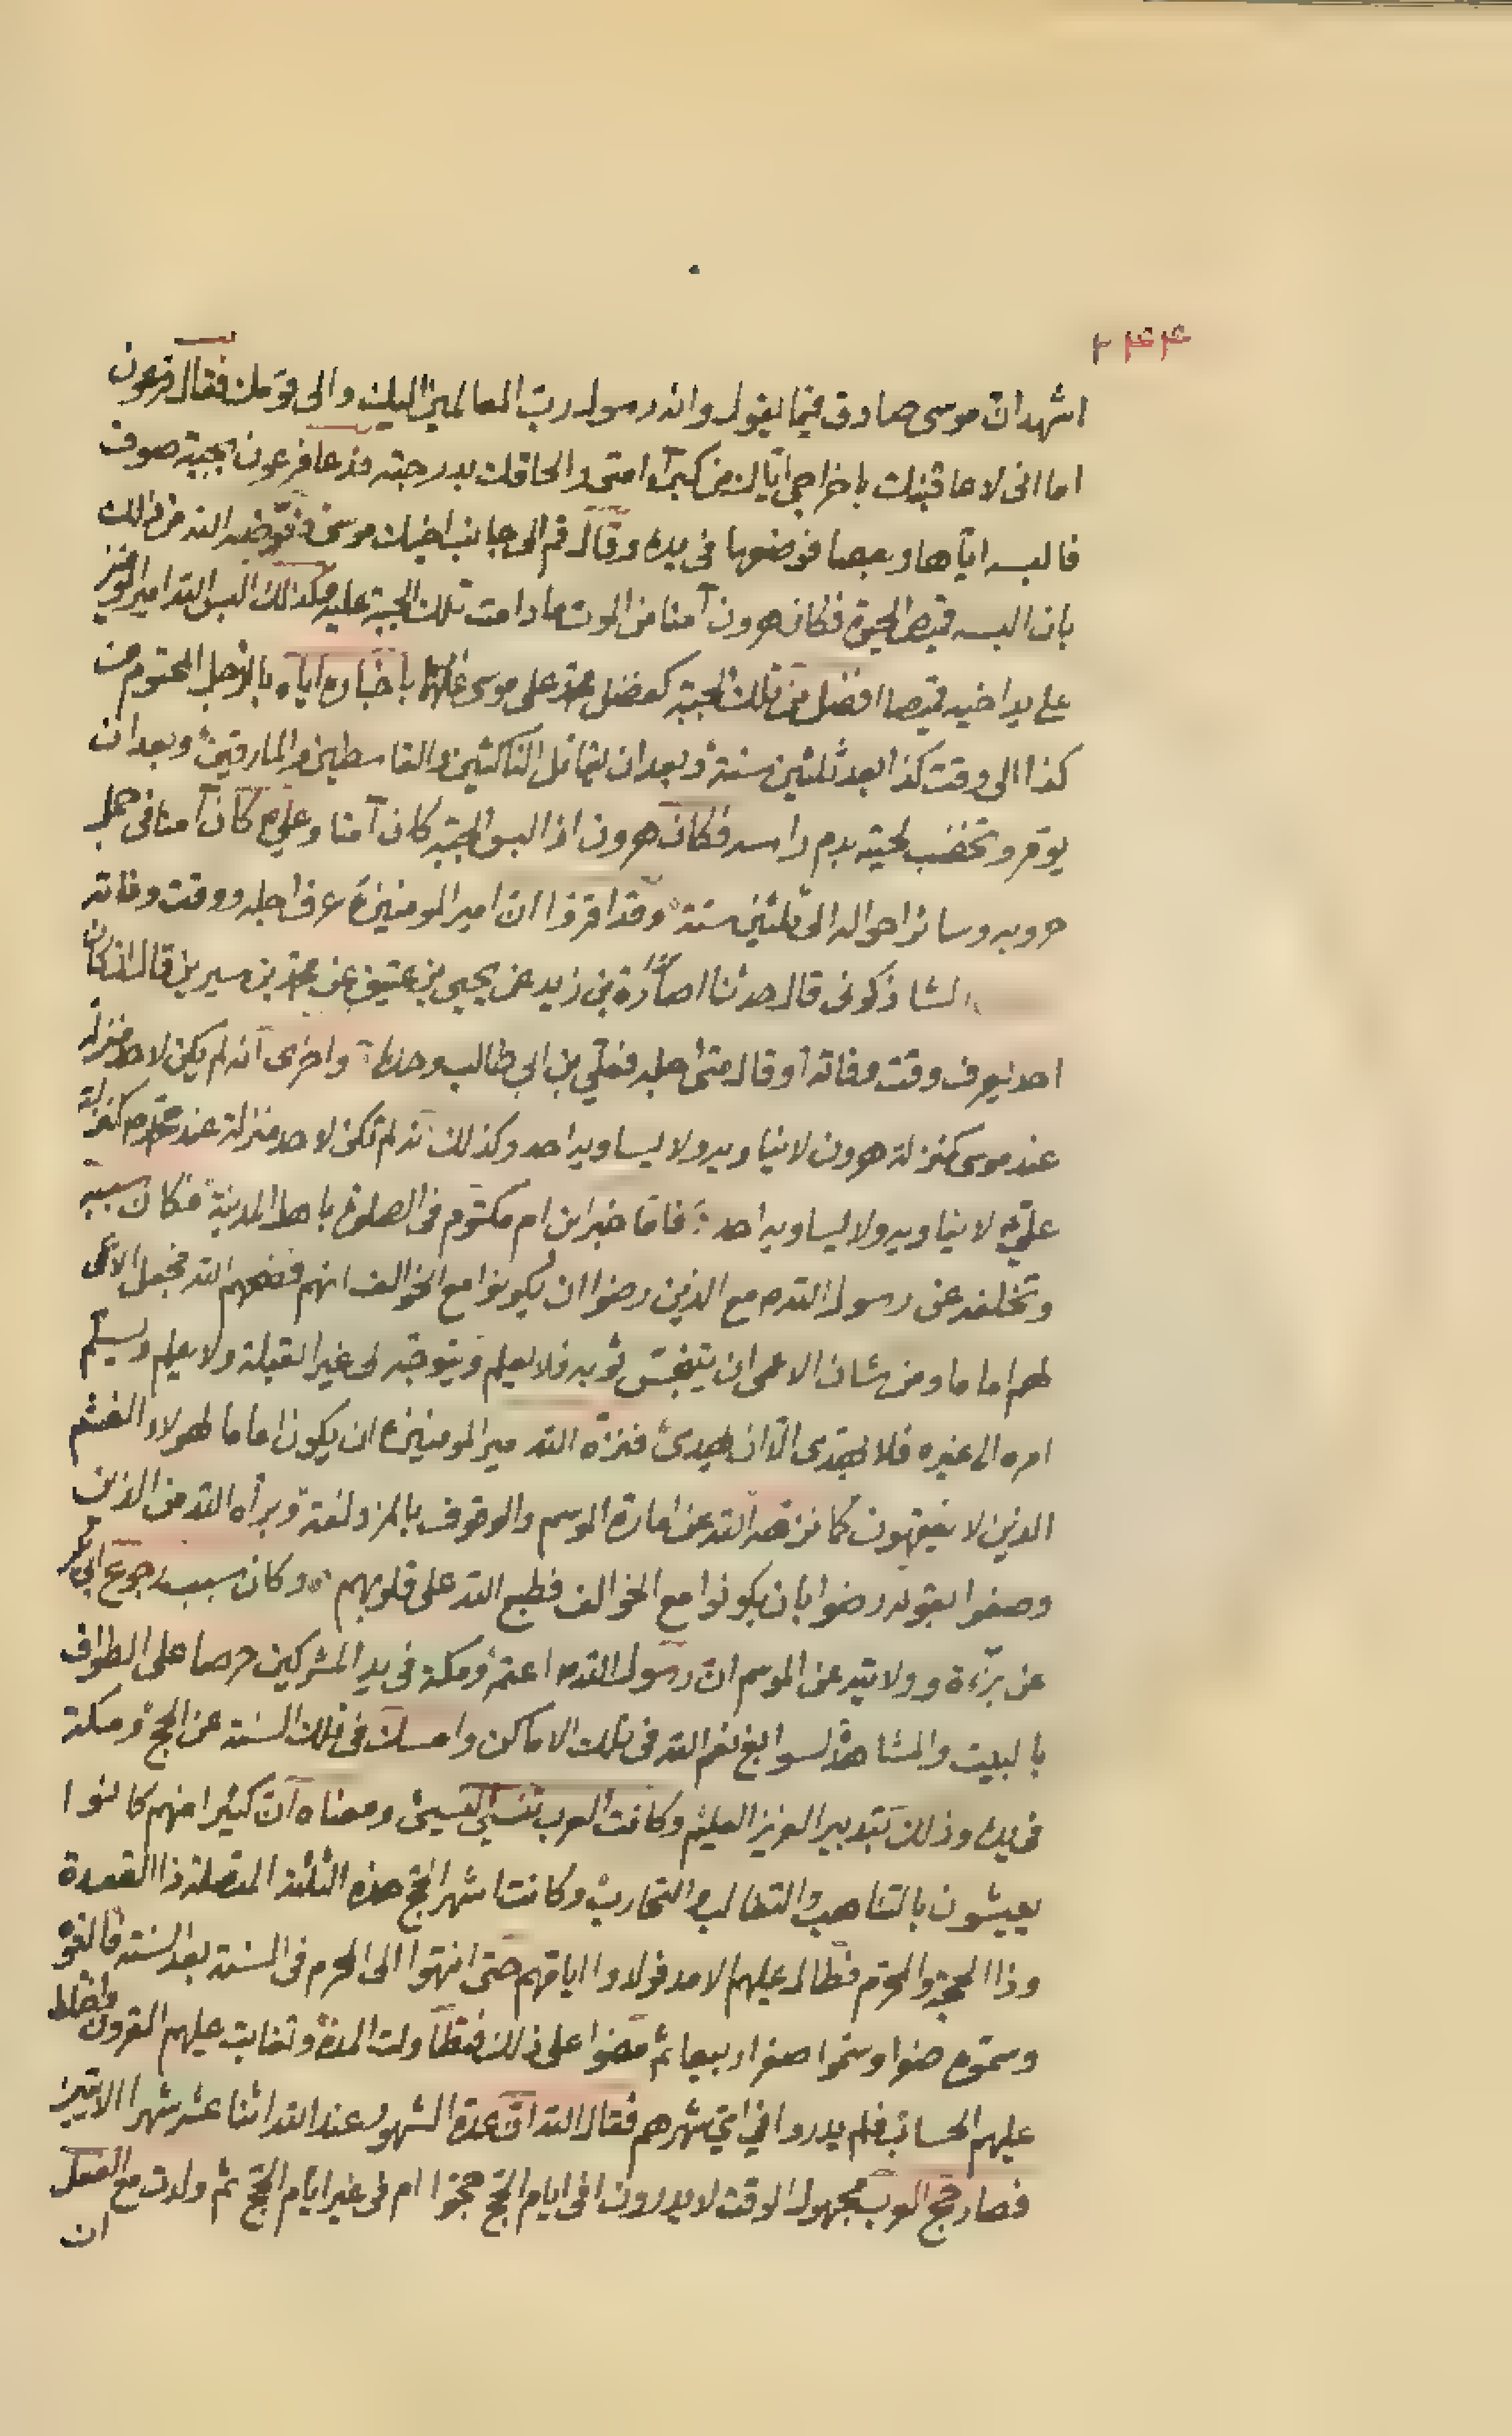 ٢٤٤
اشهد ان موسى صادق فيما يقول وانه رسول رب العالمين اليك والى قومك فقال فرعون
اما انى لاعاقبنك باخراجى اياك من كبرآء امتى والحاقك بدرجته فدعا فرعون بجبة صوف
فالبسه اياها وبعصا فوضعها فى يده وقال قم الى جانب اخيك موسى فعوضه الله من ذلك
بان البسه قميص الحيوة فكان هرون آمنا من الموت ما دامت تلك الجبة عليه فكذلك البس الله امير المؤمنين
على يد اخيه قميصا افضل من تلك الجبة كفضل محمد على موسى باخباره اياه بالاجل المحتوم من
كذا الى وقت كذا بعد ثلثين سنة وبعد ان يقاتل الناكثين والقاسطين والمارقين وبعد ان
يوقر وتخضب لحيته بدم راسه فكان هرون اذا لبس الجبة كان آمنا وعلى كان آمنا فى جمل
حروبه وسائر احواله الى ثلثين سنة وقد اقروا ان امير المومنين عرف اجله ووقت وفاته
الشاذكونى قال حدثنا بن زيد عن يحيى بن عتيق عن محمد بن سيرين قال ان كان
احد يعرف وقت وفاته او قال متى اجله فعلى بن ابى طالب وحده واخرى انه لم يكن لاحد منزلة
عند موسى كمنزلة هرون لا يناويه ولا يساويه احد وكذلك انه لم تكن لاحد منزلة عند محمد كمنزلة
على لا يناويه ولا يساويه احد فاما خبر ابن ام مكتوم فى الصلوة باهل المدينة فكان سببه
وتخلفه عن رسول الله مع الذين رضوا ان يكونوا مع الخوالف انهم ففضحهم الله فجعل الاعمى
لهم اماما ومن شان الاعمى ان يتنجس ثوبه فلا يعلم ويتوجه الى غير القبلة ولا يعلم ويسلم
امره الى غيره فلا يهتدى الا ان يهدى فنزه الله امير المومنين ان يكون اماما لهولاء الغشم
الذين لا يفقهون كما نزهه الله عن امارة الموسم والوقوف بالمزدلفة وبراه الله من الذين
وصفوا بقوله رضوا بان يكونوا مع الخوالف فطبع الله على قلوبهم وكان سبب رجوع ابى بكر
عن براءة وولايته عن الموسم ان رسول الله اعتمر ومكة فى يد المشركين حرصا على الطواف
بالبيت والمشاهد لسوابغ نعم الله فى تلك الاماكن وامسك فى تلك السنة عن الحج ومكة
فى يده وذلك بتدبير العزيز العليم وكانت العرب تنسى النسيئ ومعناه ان كثيرا منهم كانوا
يعيشون بالتناهب والتطالب والتحارب وكانت اشهر الحج هذه الثلثة المتصلة ذا القعدة
وذا الحجة والمحرم فطال عليهم الامد فولاوا اياقهم حتى انتهوا الى المحرم فى السنة بعد السنة فالغوه
وسموه صفرا وسموا صفرا ربيعا ثم مضوا على ذلك فتطاولت المدة وتعاقبت عليهم القرون واختلط
عليهم الحساب فلم يدروا فى اى شهر هم فقال الله ان عدة الشهور عند الله اثنا عشر شهرا الايتين
فصار حج العرب مجهول الوقت لا يدرون افى ايام الحج حجوا ام فى غير ايام الحج ثم ولدت مع
ان